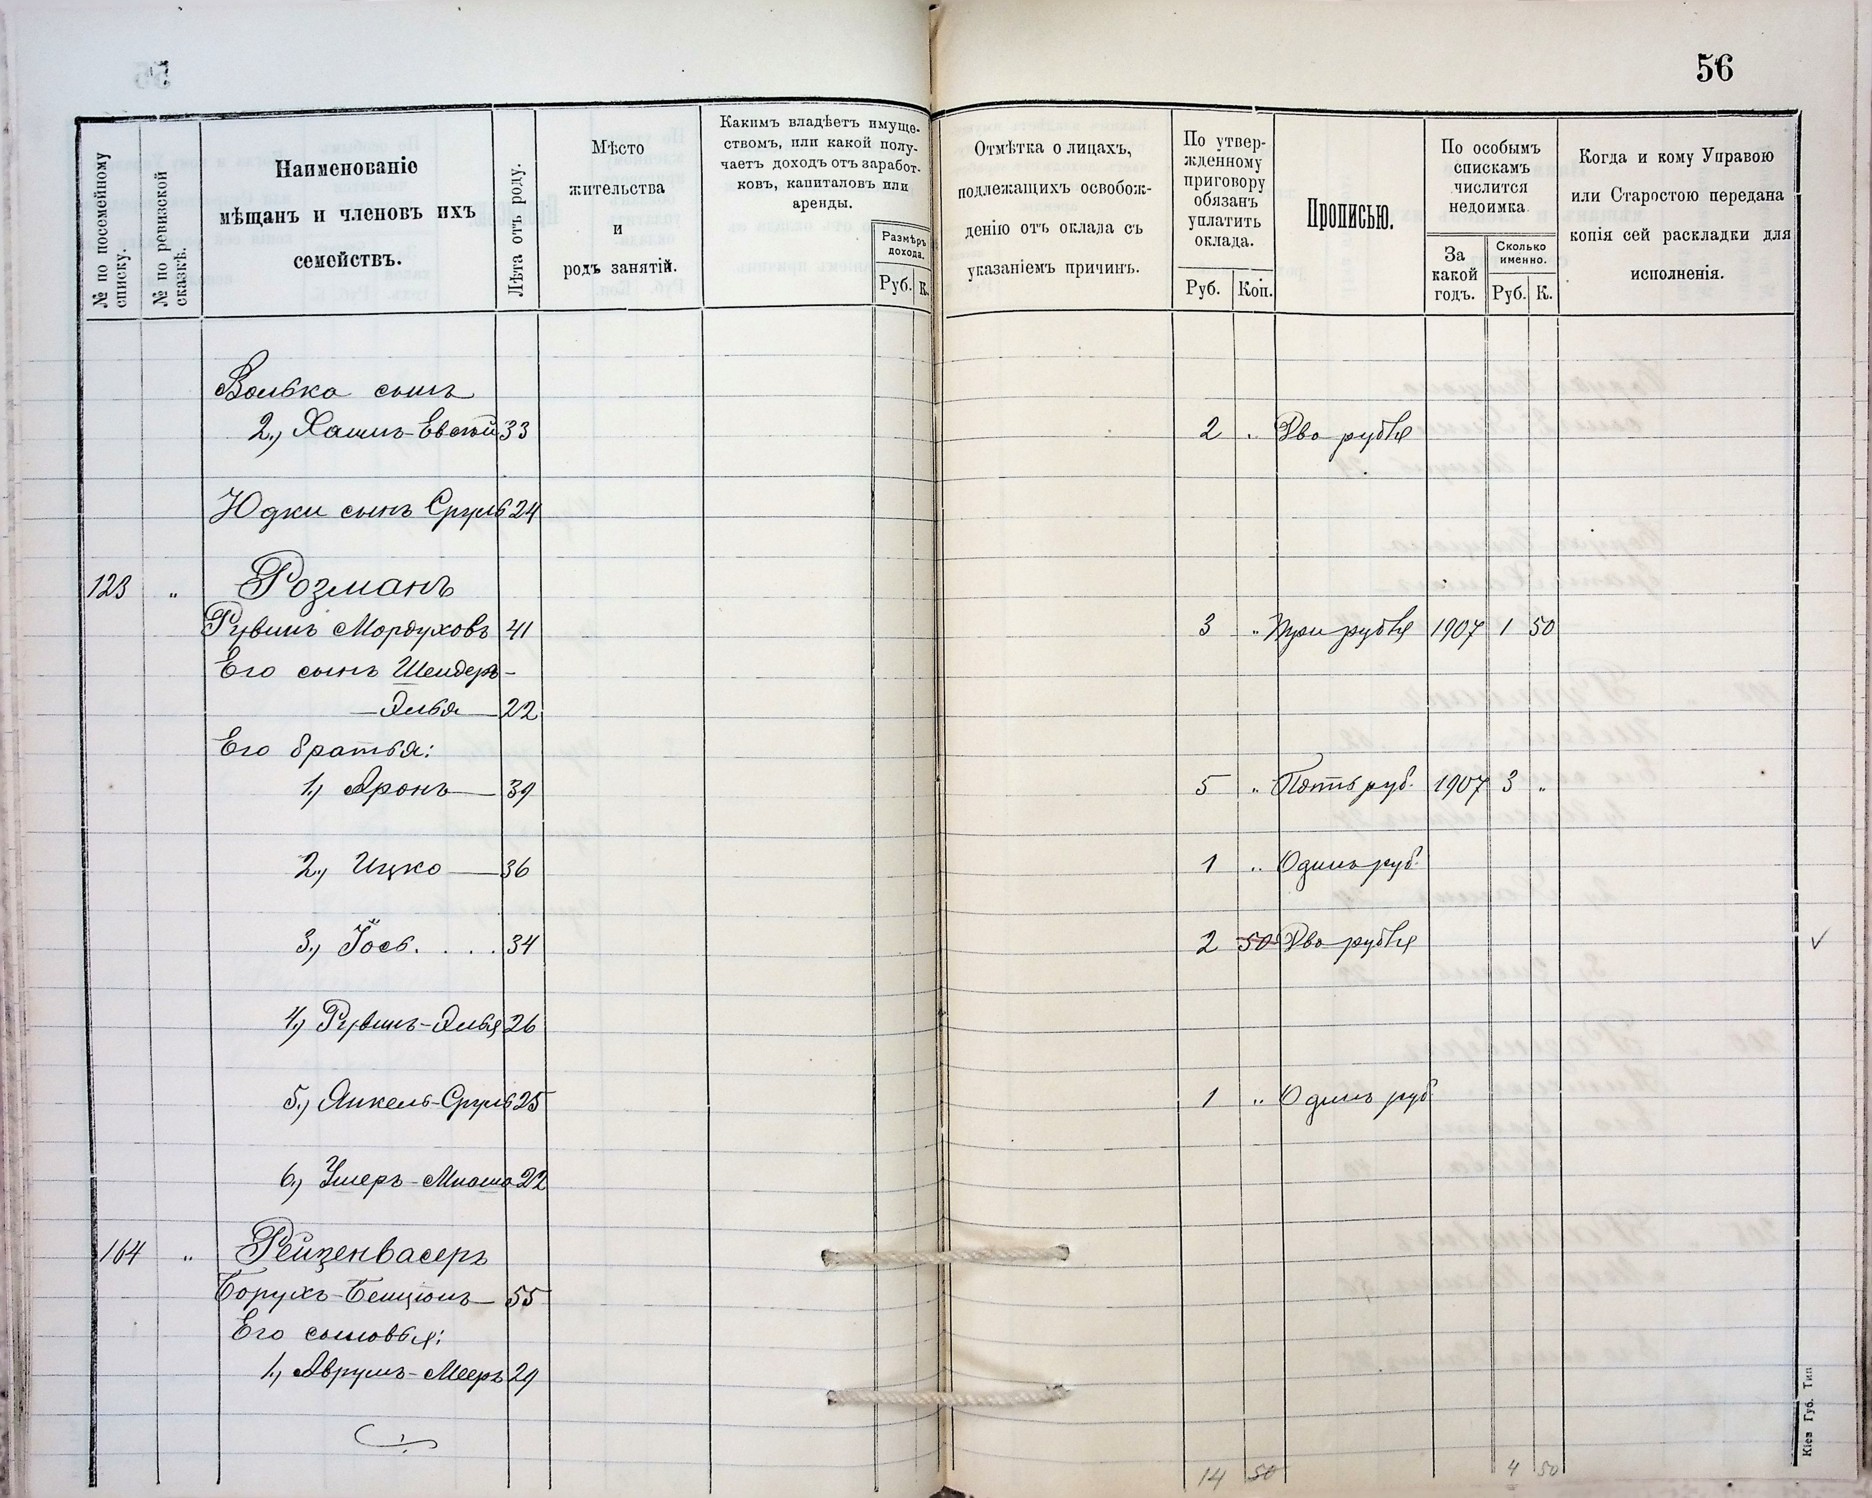 56
№ по посемейному списку.
№ по ревизской сказкѣ.
Наименованіе
мѣщанъ и членовъ ихъ
семействъ.
Лѣта отъ роду.
Мѣсто
жительства
и
родъ занятій.
Какимъ владѣетъ имуще-
ствомъ, или какой полу-
чаетъ доходъ отъ заработ-
ковъ, капиталовъ или
аренды.
Размѣръ
дохода.
Руб. К.
Отмѣтка о лицахъ,
подлежащихъ освобож-
денію отъ оклада съ
указаніемъ причинъ.
По утвер-
жденному
приговору
обязанъ
уплатить
оклада.
Руб. Коп.
Прописью.
По особымъ
спискамъ
числится
недоимка
За
какой
годъ.
Сколько
именно.
Руб. К.
Когда и кому Управою
или Старостою передана
копія сей раскладки для
исполненія.
Волька сынъ
2.) Хаимъ-Евсей 33 2 . Два рубля
Юдки сынъ Сруль 24
123 „ Розманъ
Рувинъ Мордуховъ 41 3 „ Три рубля 1907 1 50
Его сынъ Шендеръ-
Эльья 22
Его братья:
1.) Аронъ 39 5 „ Пять руб. 1907 3 „
2.) Ицко 36 1 „ Одинъ руб.
3.) Йось. . . . 34 2 50 Два рубля
4.) Рувинъ-Элья 26
5.) Янкель-Сруль 25 1 „ Одинъ руб
6.) Ушеръ-Мошко 22
164 „ Рейзенвасеръ
Борухъ-Бенціонъ 55
Его сыновья:
1.) Аврумъ-Мееръ 29
14 50 4 50
Кіев Губ. Тип